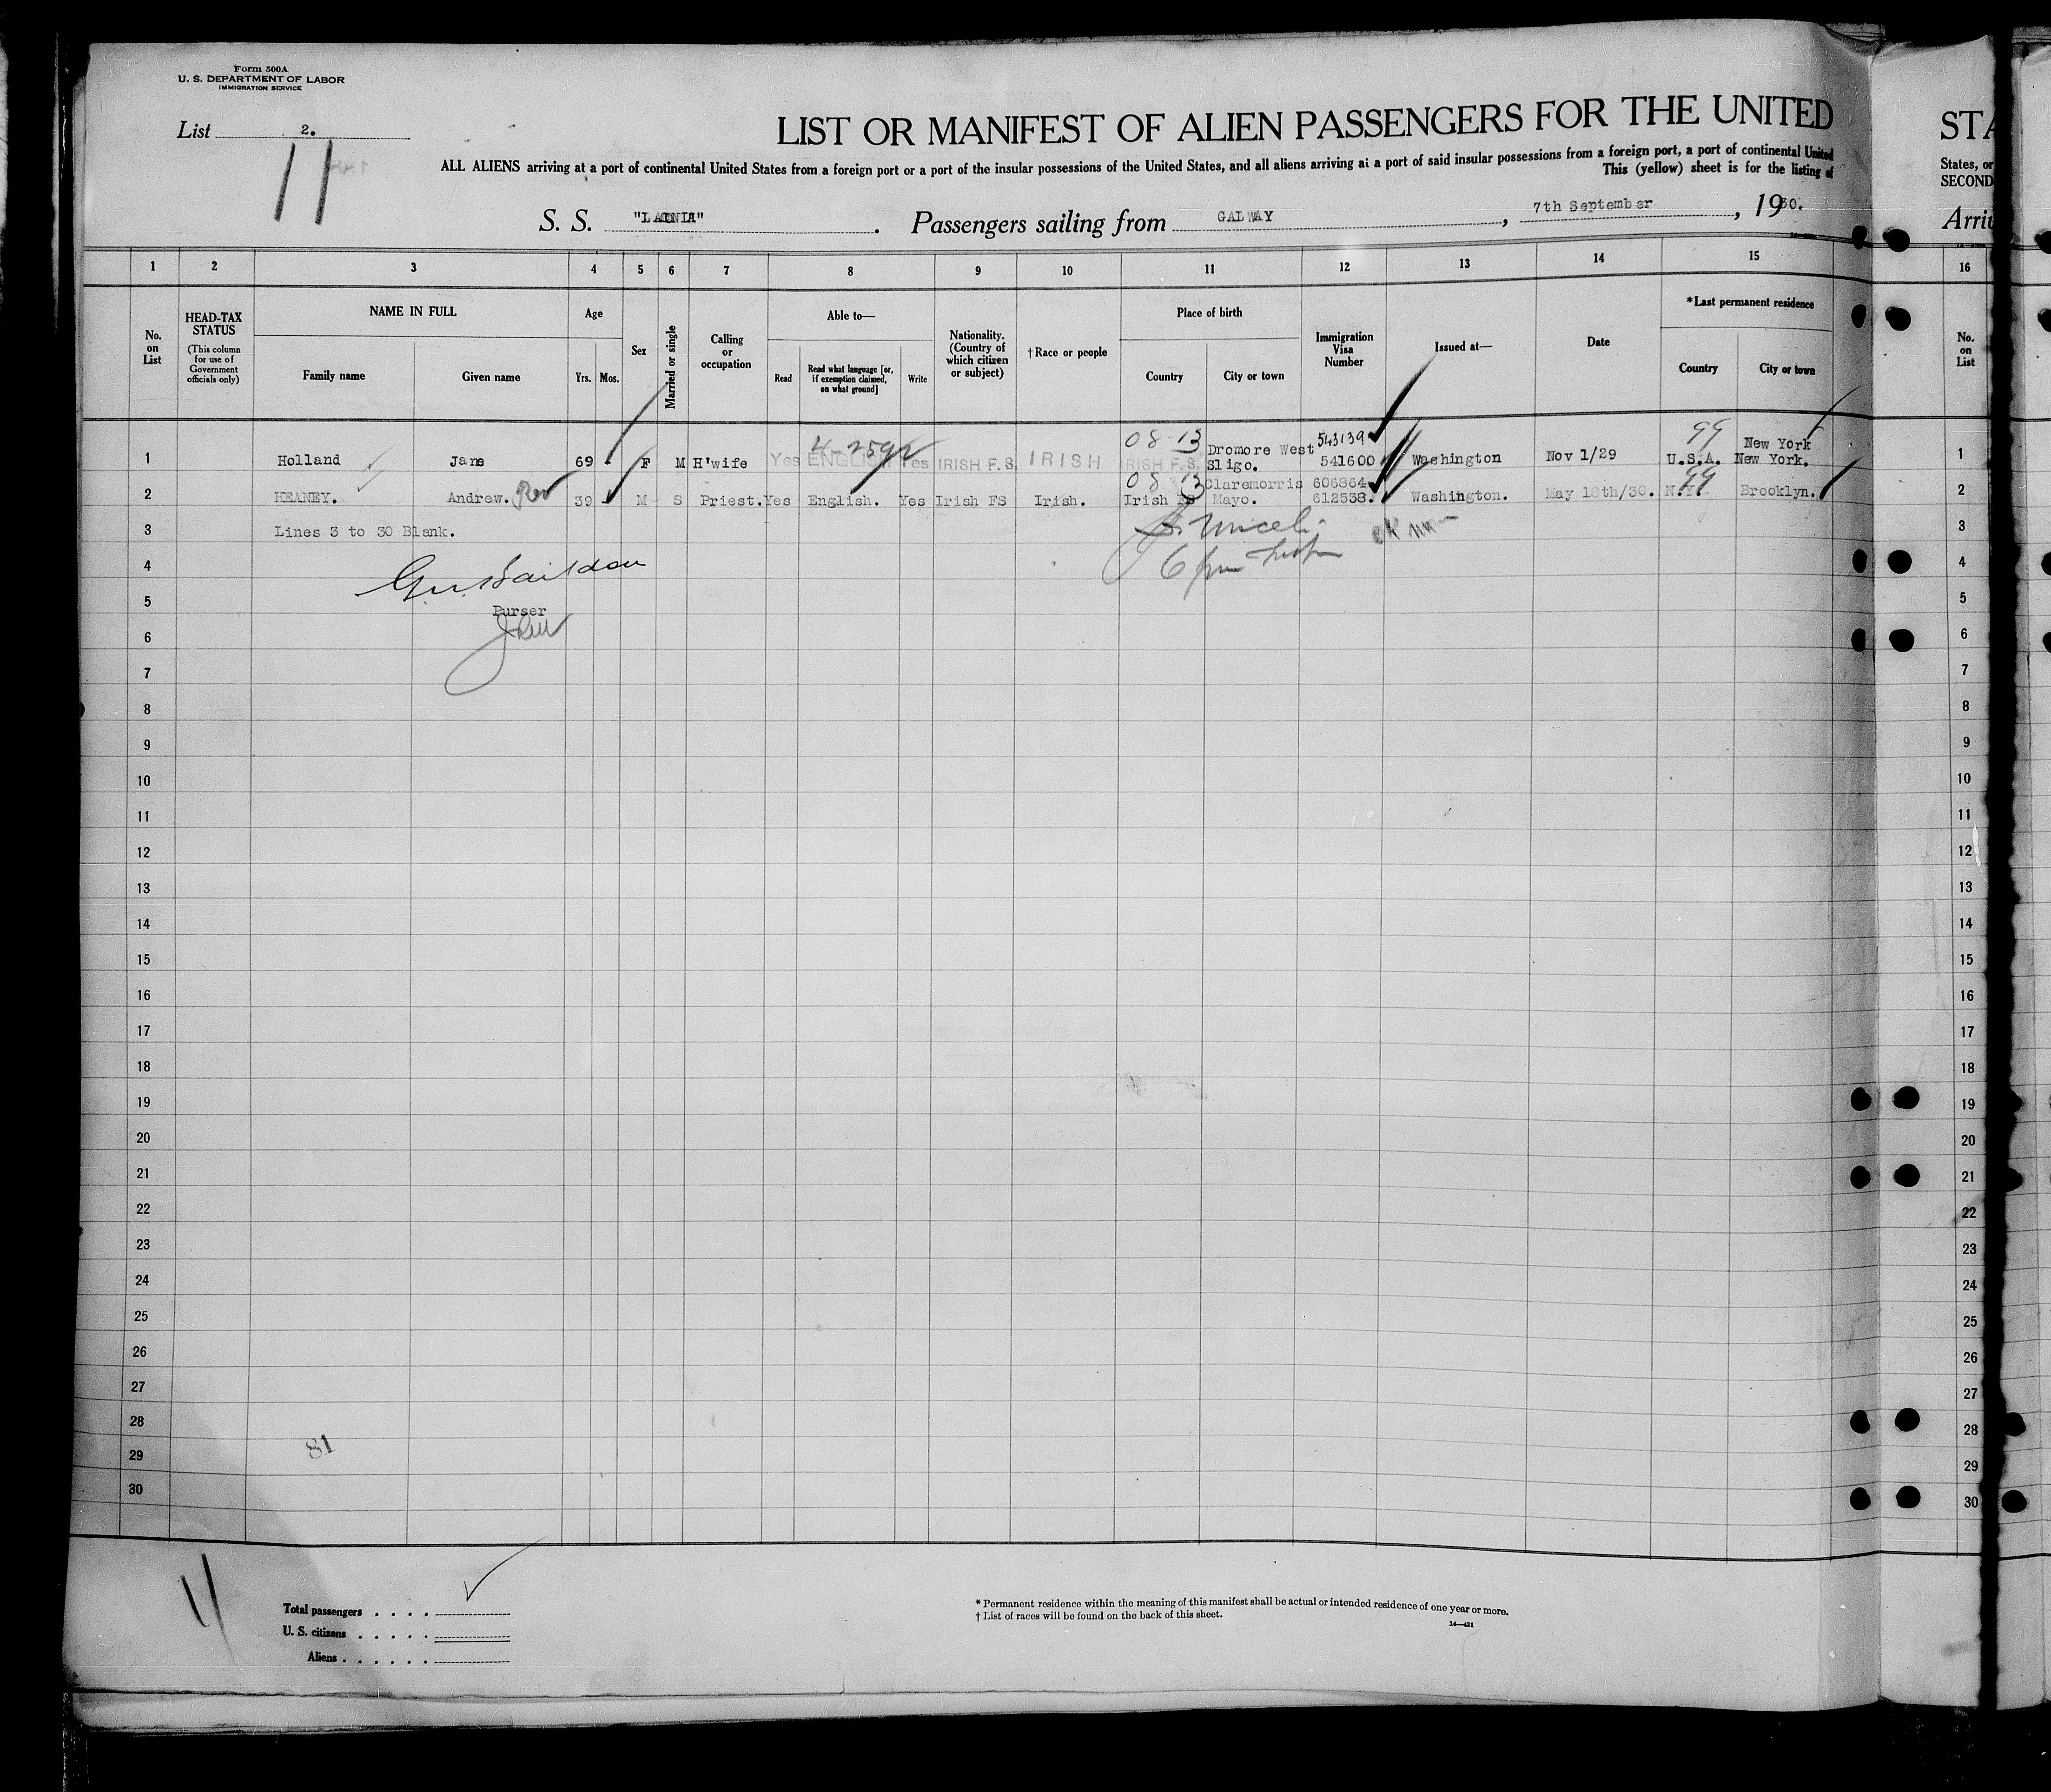 Form 500A
U. S. DEPARTMENT OF LABOR
IMMIGRATION SERVICE
List 2.
11
LIST OR MANIFEST OF ALIEN PASSENGERS FOR THE UNITED
ALL ALIENS arriving at a port of continental United States from a foreign port or a port of the insular possessions of the United States, and all aliens arriving at a port of said insular possessions from a foreign port, a port of continental United
This (yellow) sheet is for the listing of
S. S. . Passengers sailing from GALWAY , 7th September , 1930.
STA
States, or
SECOND
Arriv
1 2 3 4 5 6 7 8 9 10 11 12 13 14 15 16
No. on List
HEAD-TAX STATUS
(This column for use of Government officials only)
NAME IN FULL
Family name Given name
Age
Yrs. Mos.
Sex
Married or single
Calling or occupation
Able to—
Read Read what language [or, if exemption claimed, on what ground] Write
Nationality. (Country of which citizen or subject)
† Race or people
Place of birth
Country City or town
Immigration Visa Number
Issued at—
Date
* Last permanent residence
Country City or town
No. on List
08 13 543139 99 New York
1 Holland Jane 69 - F M H'wife Yes ENGLISH Yes IRISH F.S. IRISH IRISH F.S. Dromore West Sligo. 541600 Washington Nov 1/29 U.S.A. New York. 1
08 13 Claremorris 606864 99
2 HEANEY. Andrew. Rev 39 M S Priest. Yes English. Yes Irish FS Irish. Irish FS Mayo. 612538. Washington. May 18th/30. N.Y. Brooklyn. 2
3 Lines 3 to 30 Blank. 3
4 4
5 5
Purser
6 6
7 7
8 8
9 9
10 10
11 11
12 12
13 13
14 14
15 15
16 16
17 17
18 18
19 19
20 20
21 21
22 22
23 23
24 24
25 25
26 26
27 27
28 28
81
29 29
30 30
11
Total passengers . . . .
U. S. citizens . . . . .
Aliens . . . . . .
* Permanent residence within the meaning of this manifest shall be actual or intended residence of one year or more.
† List of races will be found on the back of this sheet.
14—431